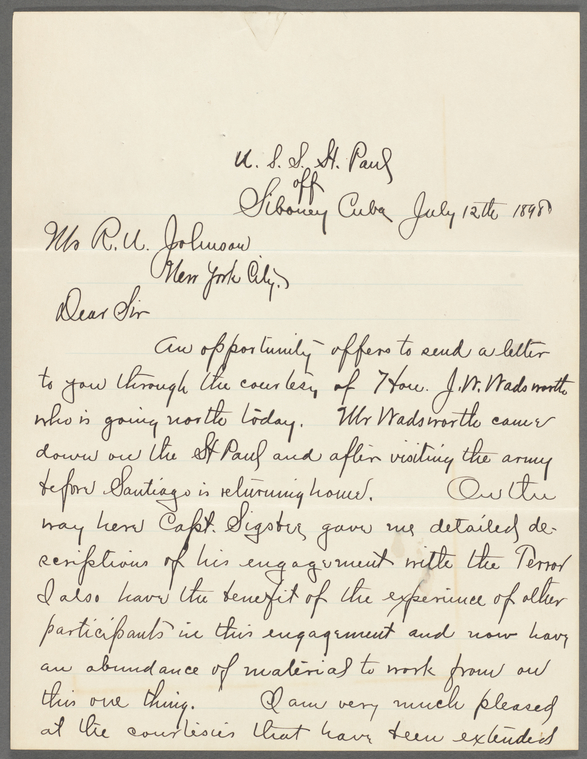 U. S. S. St. Paul
off
Siboney Cuba July 12th 1898
Mr R. U. Johnson
New York City.
Dear Sir
An opportunity offers to send a letter
to you through the courtesy of Hon. J. W. Wadsworth
who is going north today. Mr Wadsworth came
down on the St Paul and after visiting the army
before Santiago is returning home. On the
way here Capt. Sigsbee gave me detailed de-
scriptions of his engagement with the Terror
I also have the benefit of the experience of other
participants in this engagement and now have
an abundance of material to work from on
this one thing. I am very much pleased
at the courtesies that have been extended